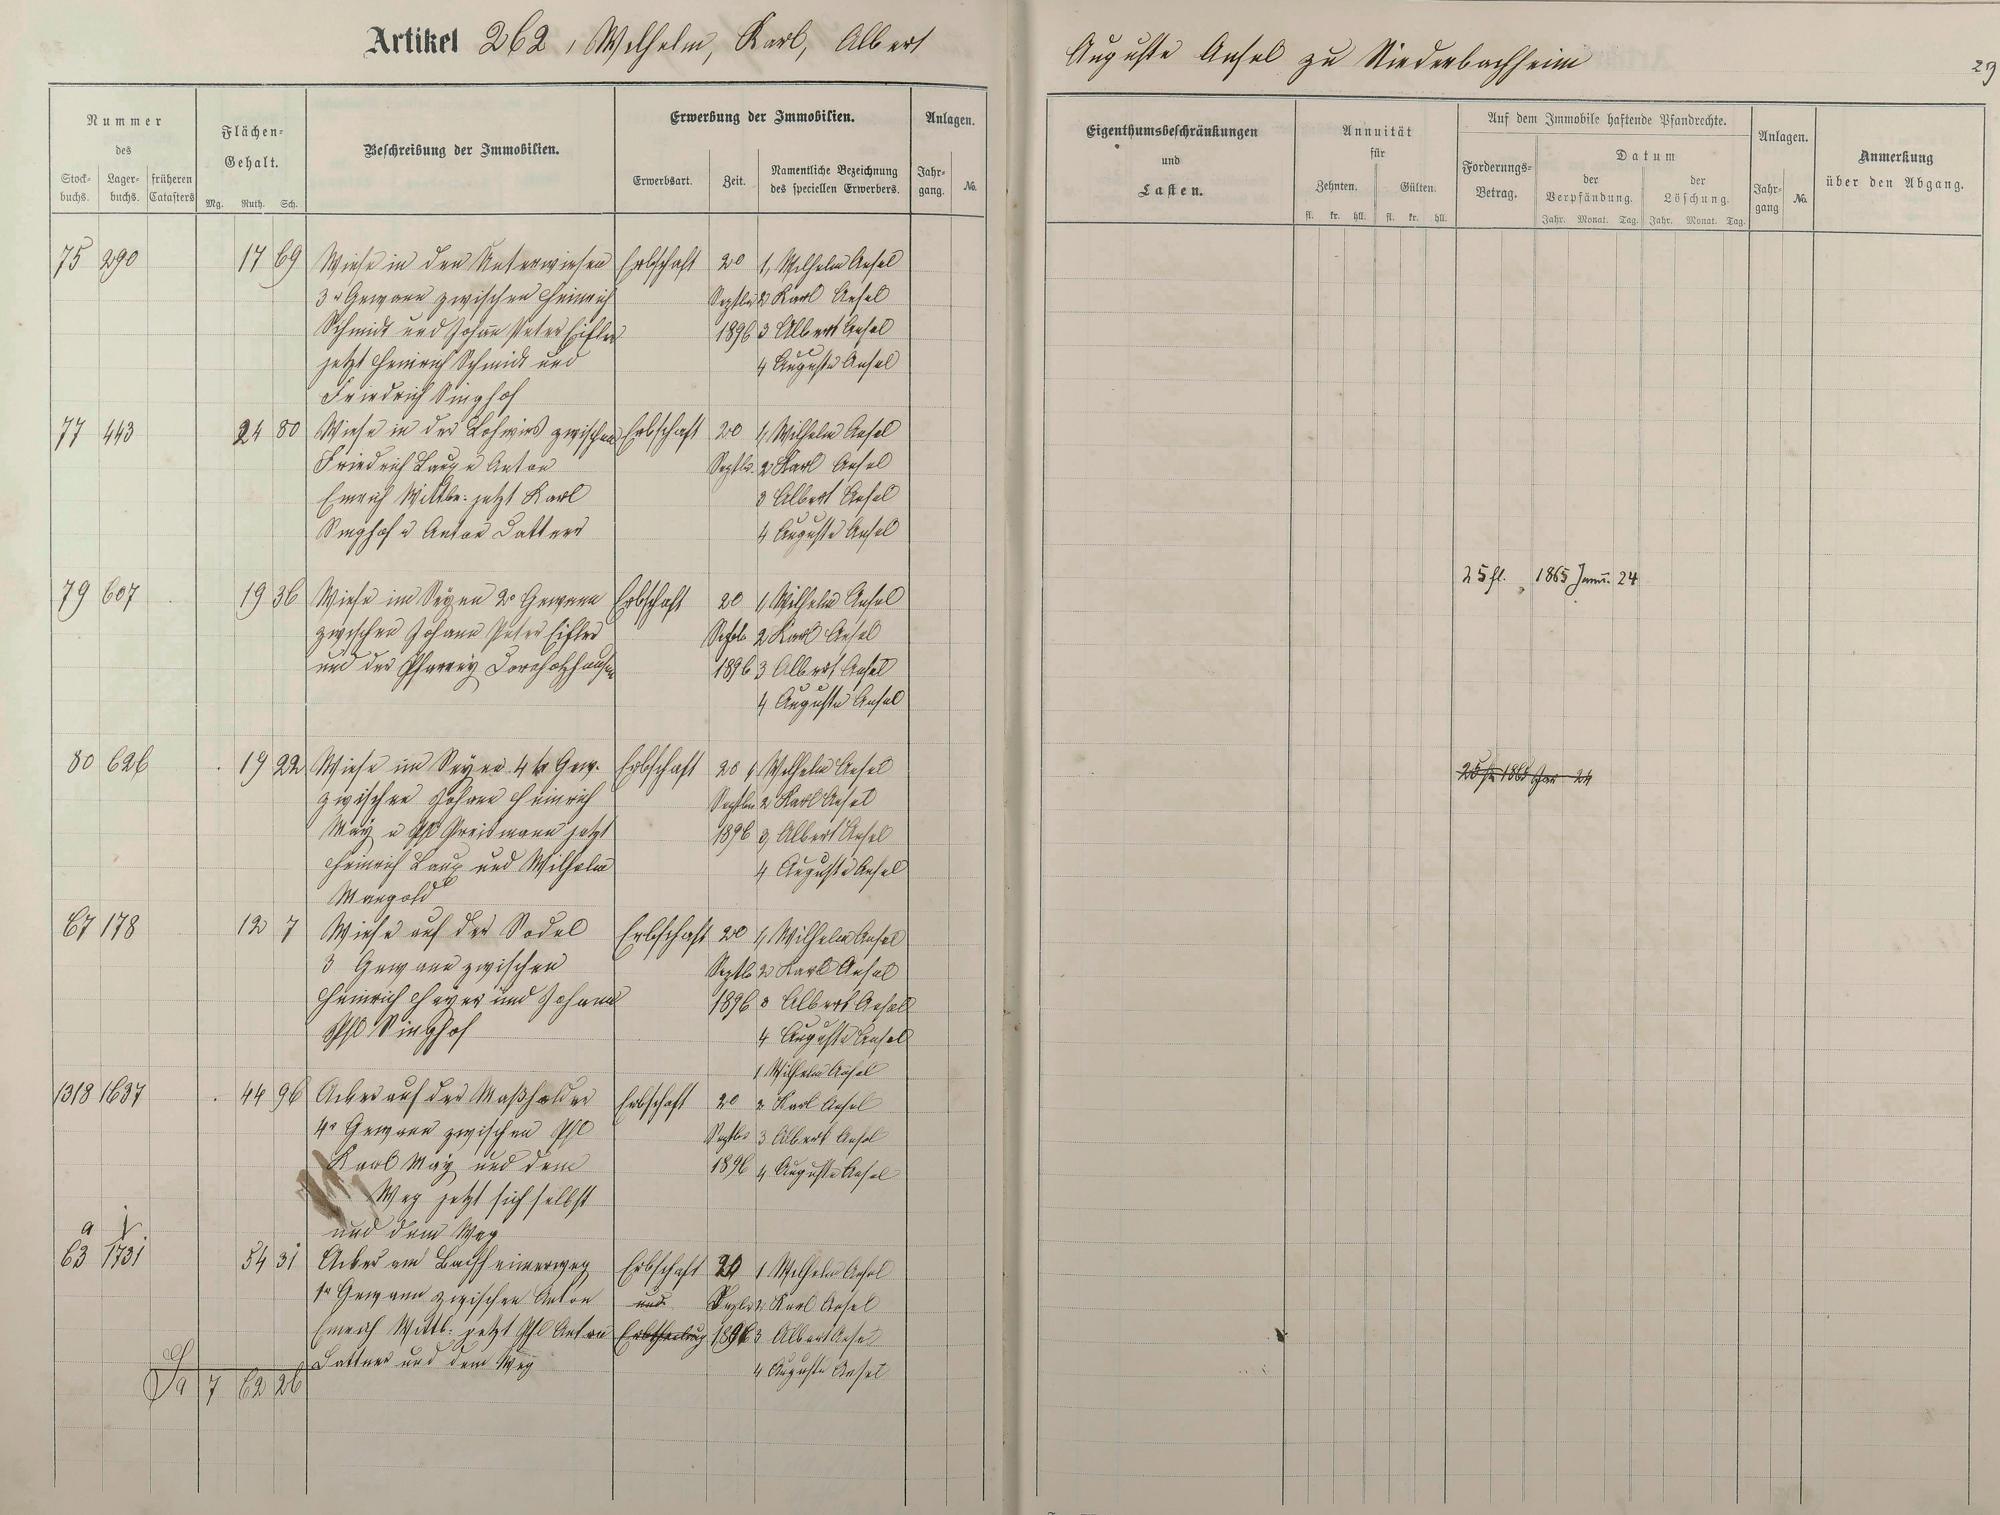 Artikel 262, Wilhelm, Karl, Albert
Auguste Ansel zu Niederbachheim
29
Nummer
des
Stock-
buchs.
Lager-
buchs.
früheren
Catasters
Flächen-
Gehalt.
Mg. Ruth. Sch.
Beschreibung der Immobilien.
Erwerbung der Immobilien.
Erwerbsart.
Zeit.
Namentliche Bezeichnung
des speciellen Erwerbers.
Anlagen.
Jahr-
gang.
No.
Eigenthumsbeschränkungen
und
Lasten.
Annuität
für
Zehnten.
Gülten.
fl. kr. hll. fl. kr. hll.
Auf dem Immobile haftende Pfandrechte.
Forderungs-
Betrag.
Datum
der
Verpfändung.
Jahr. Monat. Tag.
der
Löschung.
Jahr. Monat. Tag.
Anlagen.
Jahr-
gang
No.
Anmerkung
über den Abgang.
75 290 17 69 Wiese in den Unterwiesen Erbschaft 20 1, Wilhelm Ansel
3r Gewann zwischen Heinrich Septbr 2 Karl Ansel
Schmidt und Johann Peter Eifler 1896 3 Albert Ansel
jetzt Heinrich Schmidt und 4 Auguste Ansel
Friedrich Singhof
77 443 24 80 Wiese in der Lohwies zwischen Erbschaft 20 1, Wilhelm Ansel
Friedrich Laux u Anton Septbr. 2 Karl Ansel
Emrich Wittbe: jetzt Karl 3 Albert Ansel
Singhof u Anton Lattner 4 Auguste Ansel
79 607 19 36 Wiese im Seyen 2r Gewann Erbschaft 20 1, Wilhelm Ansel 25 fl. 1865 Janu. 24
zwischen Johann Peter Eifler Septbr 2 Karl Ansel
und der Pfarrey Dornholzhausen 1896 3 Albert Ansel
4 Auguste Ansel
80 626 19 22 Wiese im Seyen 4te Gew. Erbschaft 20 1, Wilhelm Ansel 25 fl 1865 Jan 24
zwischen Johann Heinrich Septbr 2 Karl Ansel
May u Phl Greismann jetzt 1896 3, Albert Ansel
Heinrich Laux und Wilhelm 4 Auguste Ansel
Mangold
67 178 12 7 Wiese auf der Sodel Erbschaft 20 1, Wilhelm Ansel
3 Gewann zwischen Septb 2 Karl Ansel
Heinrich Heyer und Johann 1896 3 Albert Ansel
Phl Singhof 4 Auguste Ansel
1 Wilhelm Ansel
1318 1637 44 96 Acker auf der Maßholder Erbschaft 20 2 Karl Ansel
4r Gewann zwischen Phl Septbr 3 Albert Ansel
Karl May und dem 1896 4 Auguste Ansel
Weg jetzt sich selbst
und dem Weg
a
63 1731 54 31 Acker am Bachheimerweg Erbschaft 20 1 Wilhelm Ansel
1r Gewann zwischen Anton und Septbr 2 Karl Ansel
Emrich Wittb: jetzt Phl Anton Erbtheilung 1896 3 Albert Ansel
Lattner und dem Weg 4 Auguste Ansel
Sa 7 62 26